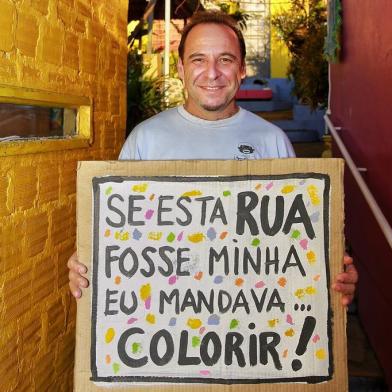 SE ESTA RUA
FOSSE MINHA
EU MANDAVA...
COLORIR!